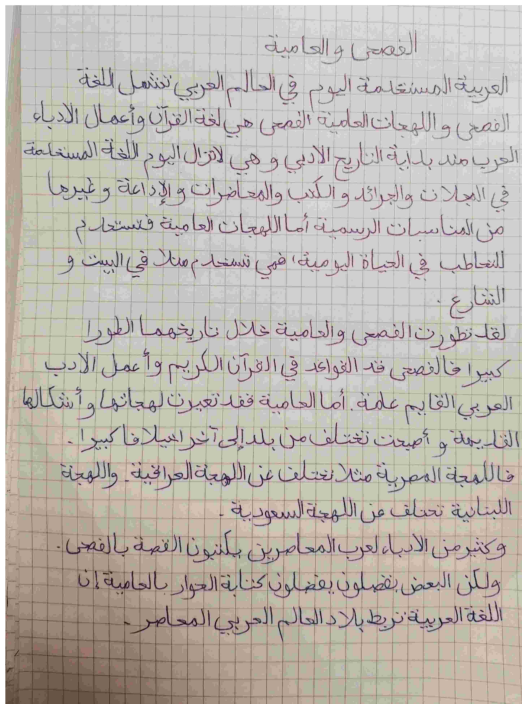 الفصحى والعامية
العربية المستخدمة اليوم في العالم العربي تشمل اللغة
الفصحى واللهجات العامية الفصحى هي لغة القرآن وأعمال الادباء
العرب منذ بداية التاريخ الادبي وهي لاتزال اليوم اللغة المستخدمة
في المجلات والجرائد والكتب والمحاضرات والإذاعة وغيرها
من المناسبات الرسمية أما اللهجات العامية فتستخدم
للتخاطب في الحياة اليومية، فهي تستخدم مثلا في البيت و
الشارع .
لقد تطورت الفصحى والعامية خلال تاريخهما الطورا
كبيرا فالفصحى قد القواعد في القرآن الكريم وأعمل الادب
العربي القايم علمة. أما العامية فقد تغيرت لهجاتها وأشكالها
القديمة و أصبحت تختلف من بلد إلى آخر اختلافا كبيرا .
فاللهجة المصرية مثلا تختلف عن اللهجة العراقية . واللهجة
اللبنانية تختلف عن اللهجة السعودية .
وكثير من الادباء لعرب المعاصرين يكتبون القصة بالفصحى .
ولكن البعض يفضلون يفضلون كتابة الحوار بالعامية إن
اللغة العربية تربط بلاد العالم العربي المعاصر .